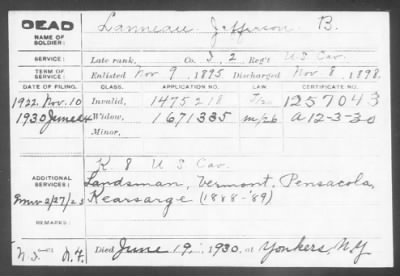 DEAD
NAME OF SOLDIER: Lanneau Jefferson B.
SERVICE: Late rank, Co. I, 2 Reg't U S Cav.
TERM OF SERVICE: Enlisted Nov 9, 1895 Discharged Nov 8, 1898.
DATE OF FILING. CLASS. APPLICATION NO. LAW. CERTIFICATE NO.
1922. Nov. 10 Invalid, 1475218 1257043
1930 June 24 Widow, 1671335 m/26 A 12-3-30
Minor,
ADDITIONAL SERVICES: K 8 U S Cav.
Landsman, Vermont, Pensacola,
Kearsarge (1888-'89)
REMARKS:
Died June 19, 1930, at Yonkers, N.Y.